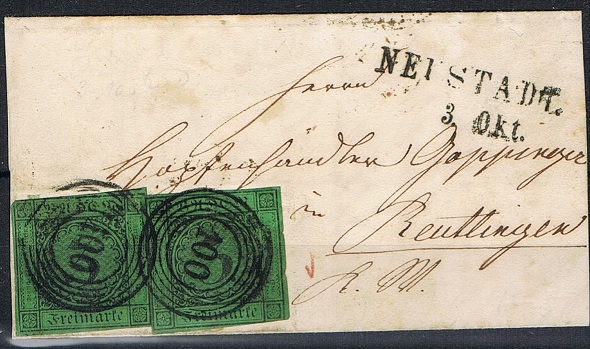 NEUSTADT.
3 Okt.
Herrn
Hopfenhändler Goppinger
in
Reutlingen
K. W.
100
100
Freimarke
Freimarke